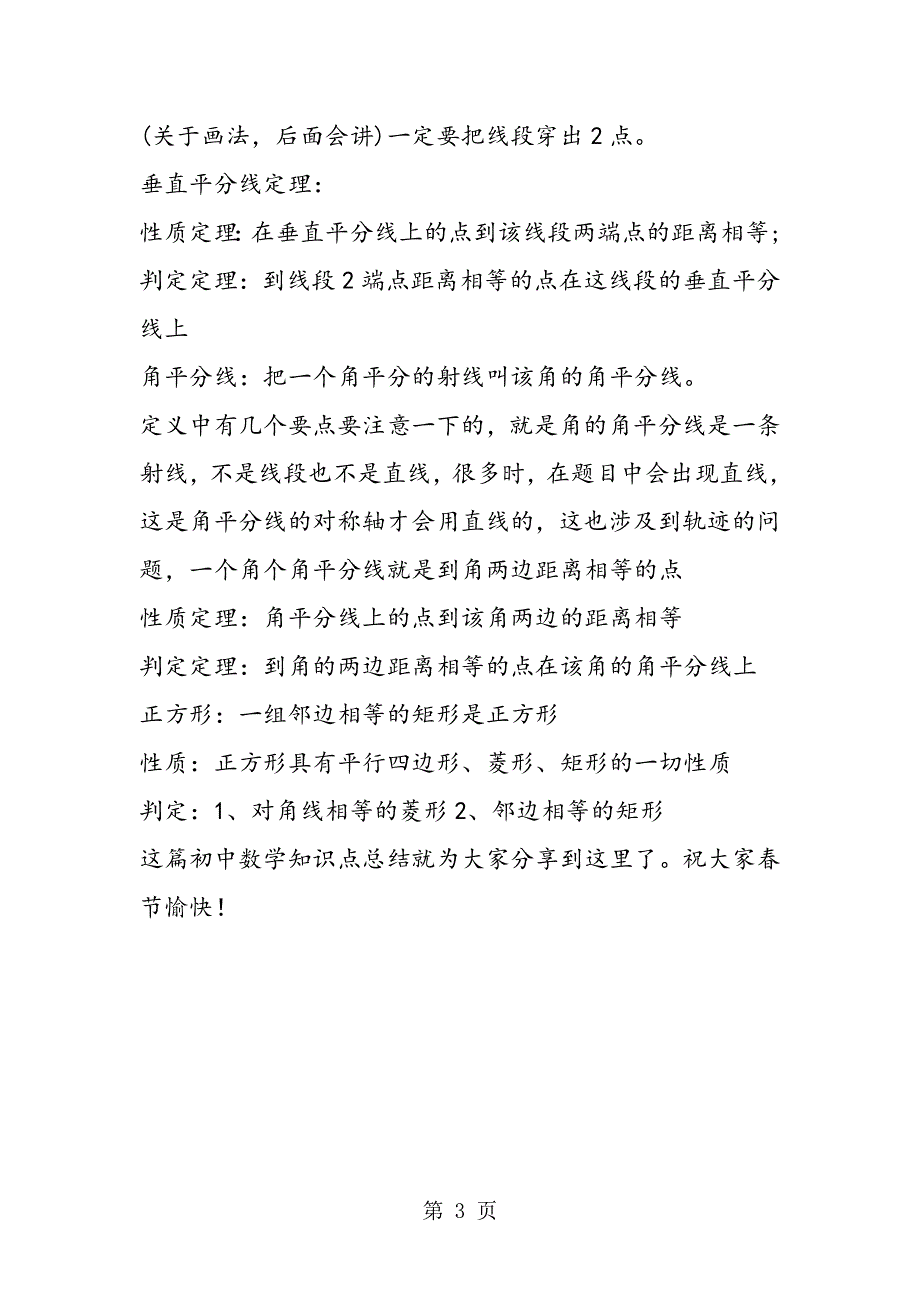 (关于画法，后面会讲)一定要把线段穿出2点。
垂直平分线定理：
性质定理：在垂直平分线上的点到该线段两端点的距离相等；
判定定理：到线段2端点距离相等的点在这线段的垂直平分
线上
角平分线：把一个角平分的射线叫该角的角平分线。
定义中有几个要点要注意一下的，就是角的角平分线是一条
射线，不是线段也不是直线，很多时，在题目中会出现直线，
这是角平分线的对称轴才会用直线的，这也涉及到轨迹的问
题，一个角个角平分线就是到角两边距离相等的点
性质定理：角平分线上的点到该角两边的距离相等
判定定理：到角的两边距离相等的点在该角的角平分线上
正方形：一组邻边相等的矩形是正方形
性质：正方形具有平行四边形、菱形、矩形的一切性质
判定：1、对角线相等的菱形2、邻边相等的矩形
这篇初中数学知识点总结就为大家分享到这里了。祝大家春
节愉快！
第 3 页